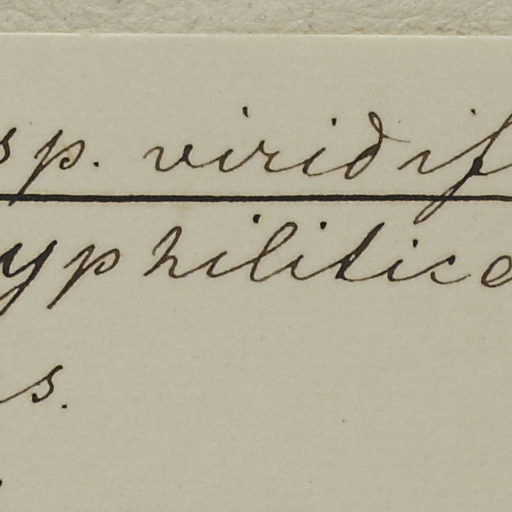 sp. viridif
yphilitica
s.